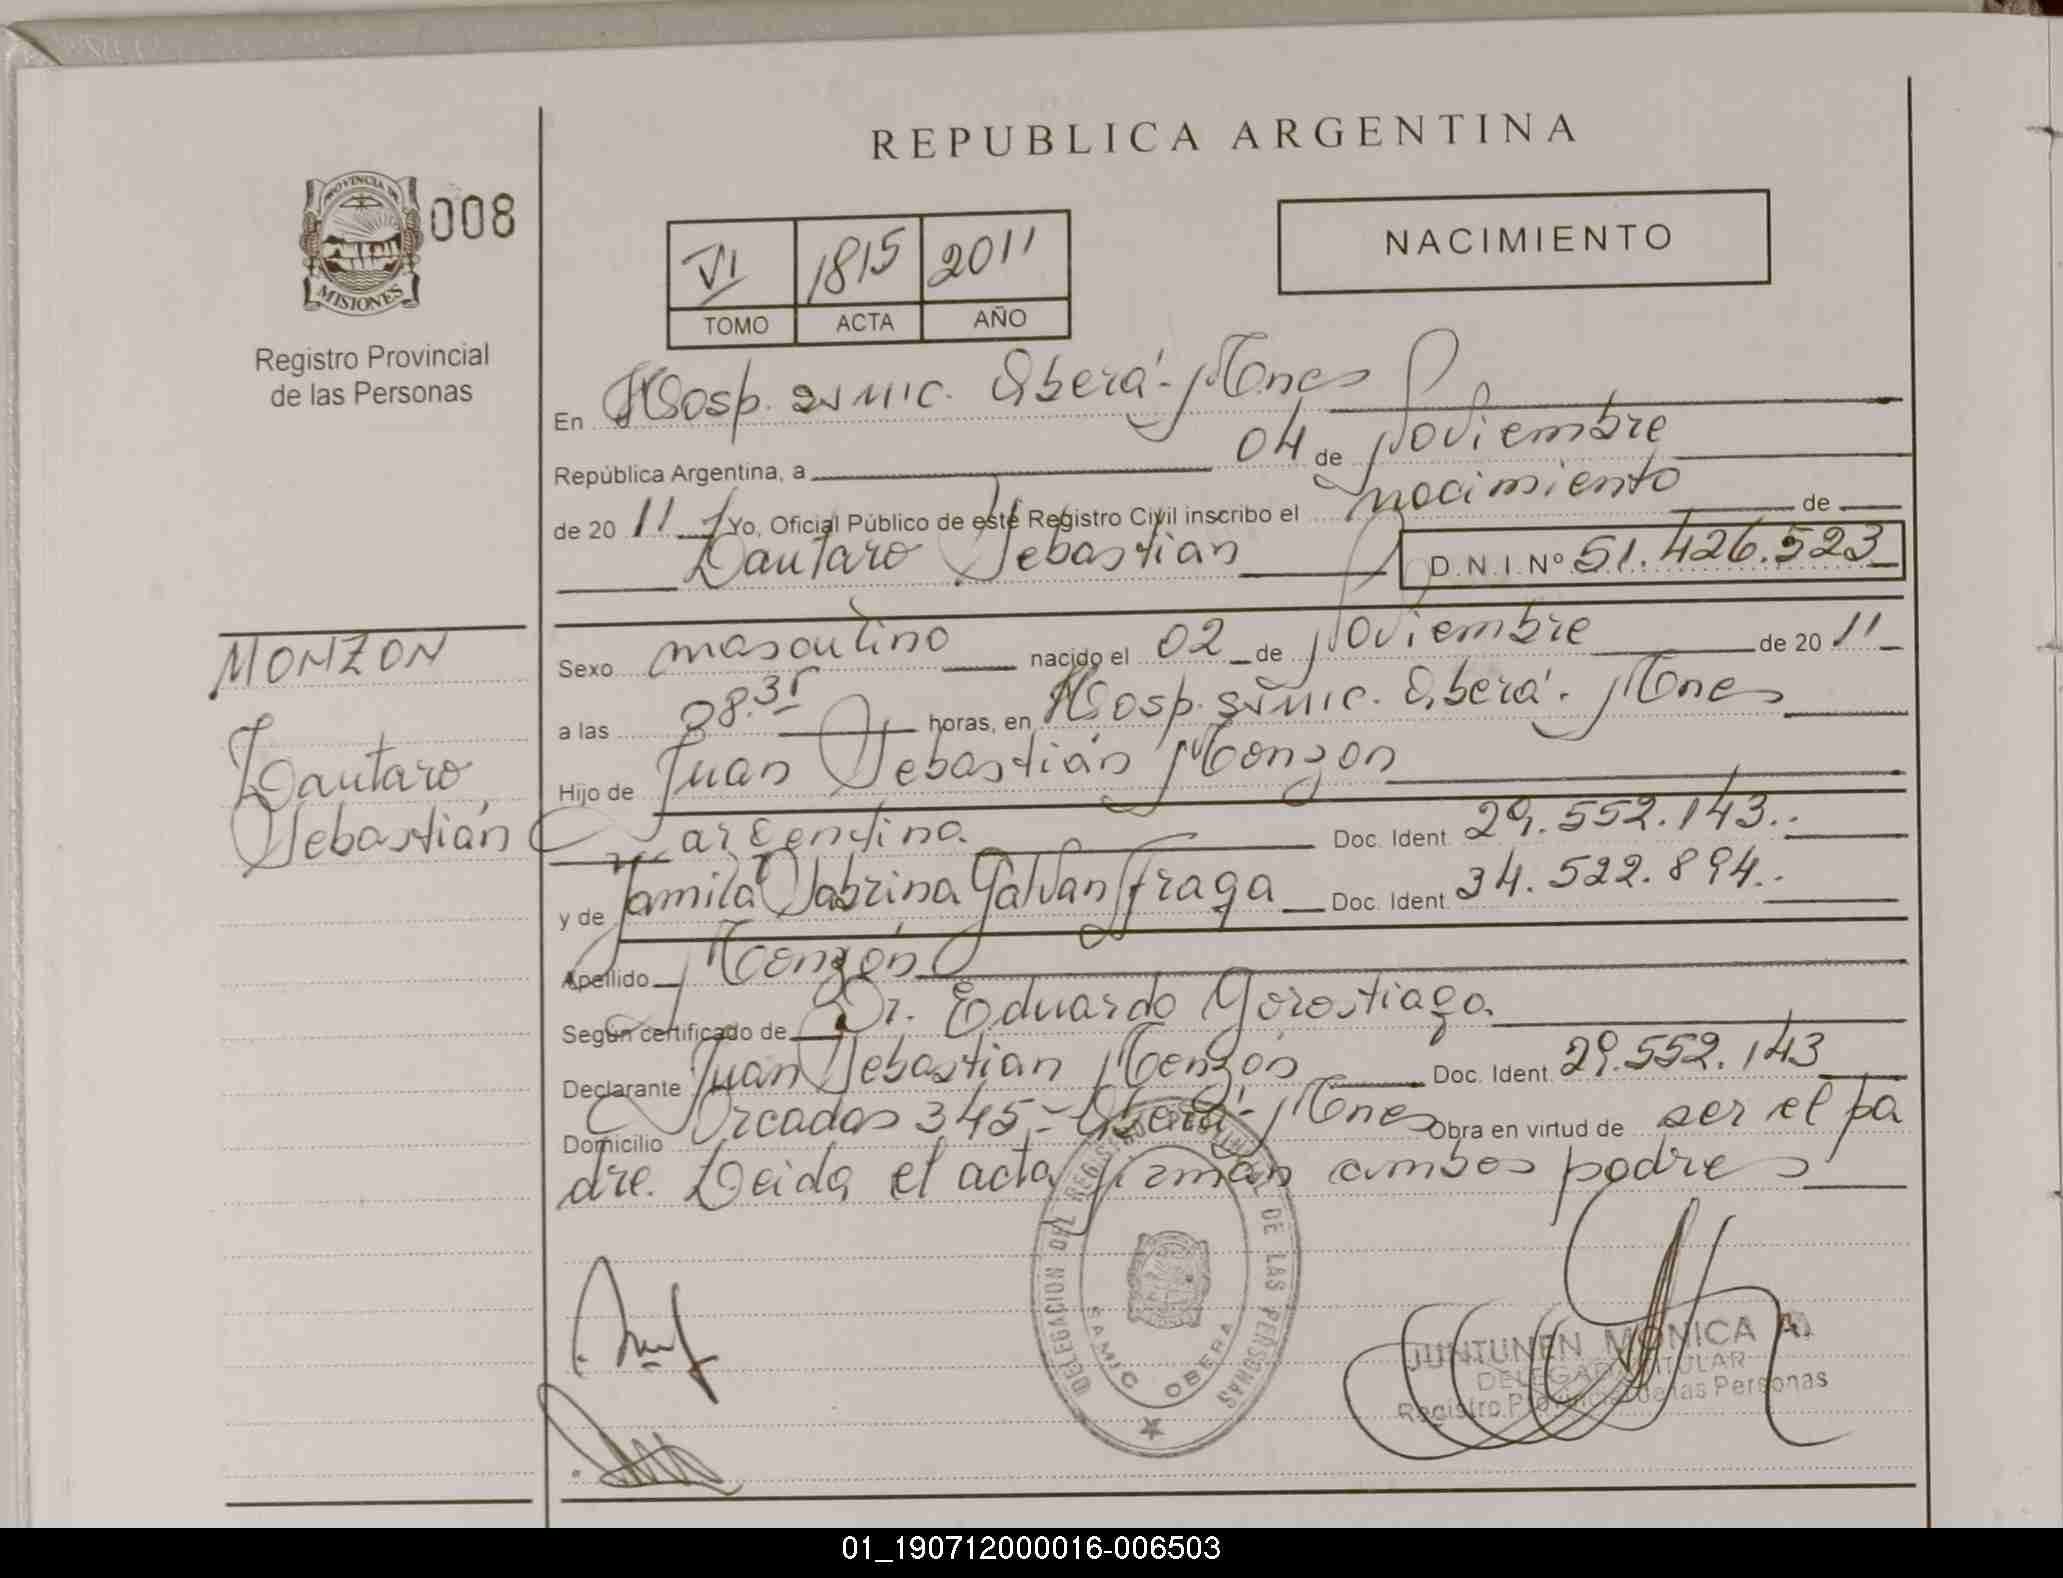 REPUBLICA ARGENTINA
PROVINCIA DE
MISIONES
008
Registro Provincial
de las Personas
VI 1815 2011
TOMO ACTA AÑO
NACIMIENTO
En Hosp. SAMIC. Oberá - Mnes
República Argentina, a 04 de Noviembre
de 2011 Yo, Oficial Público de este Registro Civil inscribo el nacimiento de
Lautaro Sebastián D.N.I. Nº 51.426.523
MONZON
Lautaro
Sebastián
Sexo masculino nacido el 02 de Noviembre de 2011
a las 08.35 horas, en Hosp. SAMIC. Oberá. Mnes
Hijo de Juan Sebastián Monzon
argentina. Doc. Ident. 29.552.143..
y de Jamila Sabrina Galvan Fraga Doc. Ident. 34.522.894..
Apellido Monzón
Según certificado de Dr. Eduardo Gorostiaga.
Declarante Juan Sebastian Monzón Doc. Ident. 29.552.143
Domicilio Arcadas 345 - Oberá - Mnes Obra en virtud de ser el pa
dre. Leida el acta firman ambos padres
DELEGACION DEL REGISTRO PROVINCIAL DE LAS PERSONAS
SAMIC OBERA
JUNTUNEN MONICA A.
DELEGADA TITULAR
Registro Provincial de las Personas
01_190712000016-006503